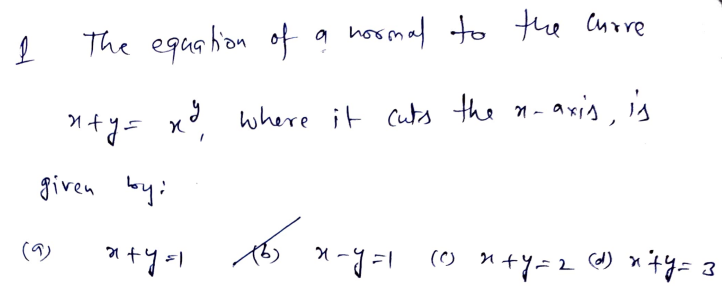 1 The equation of a normal to the curve
x+y = x^y, where it cuts the x-axis, is
given by:
(a) x+y=1 (b) x-y=1 (c) x+y=2 (d) x+y=3